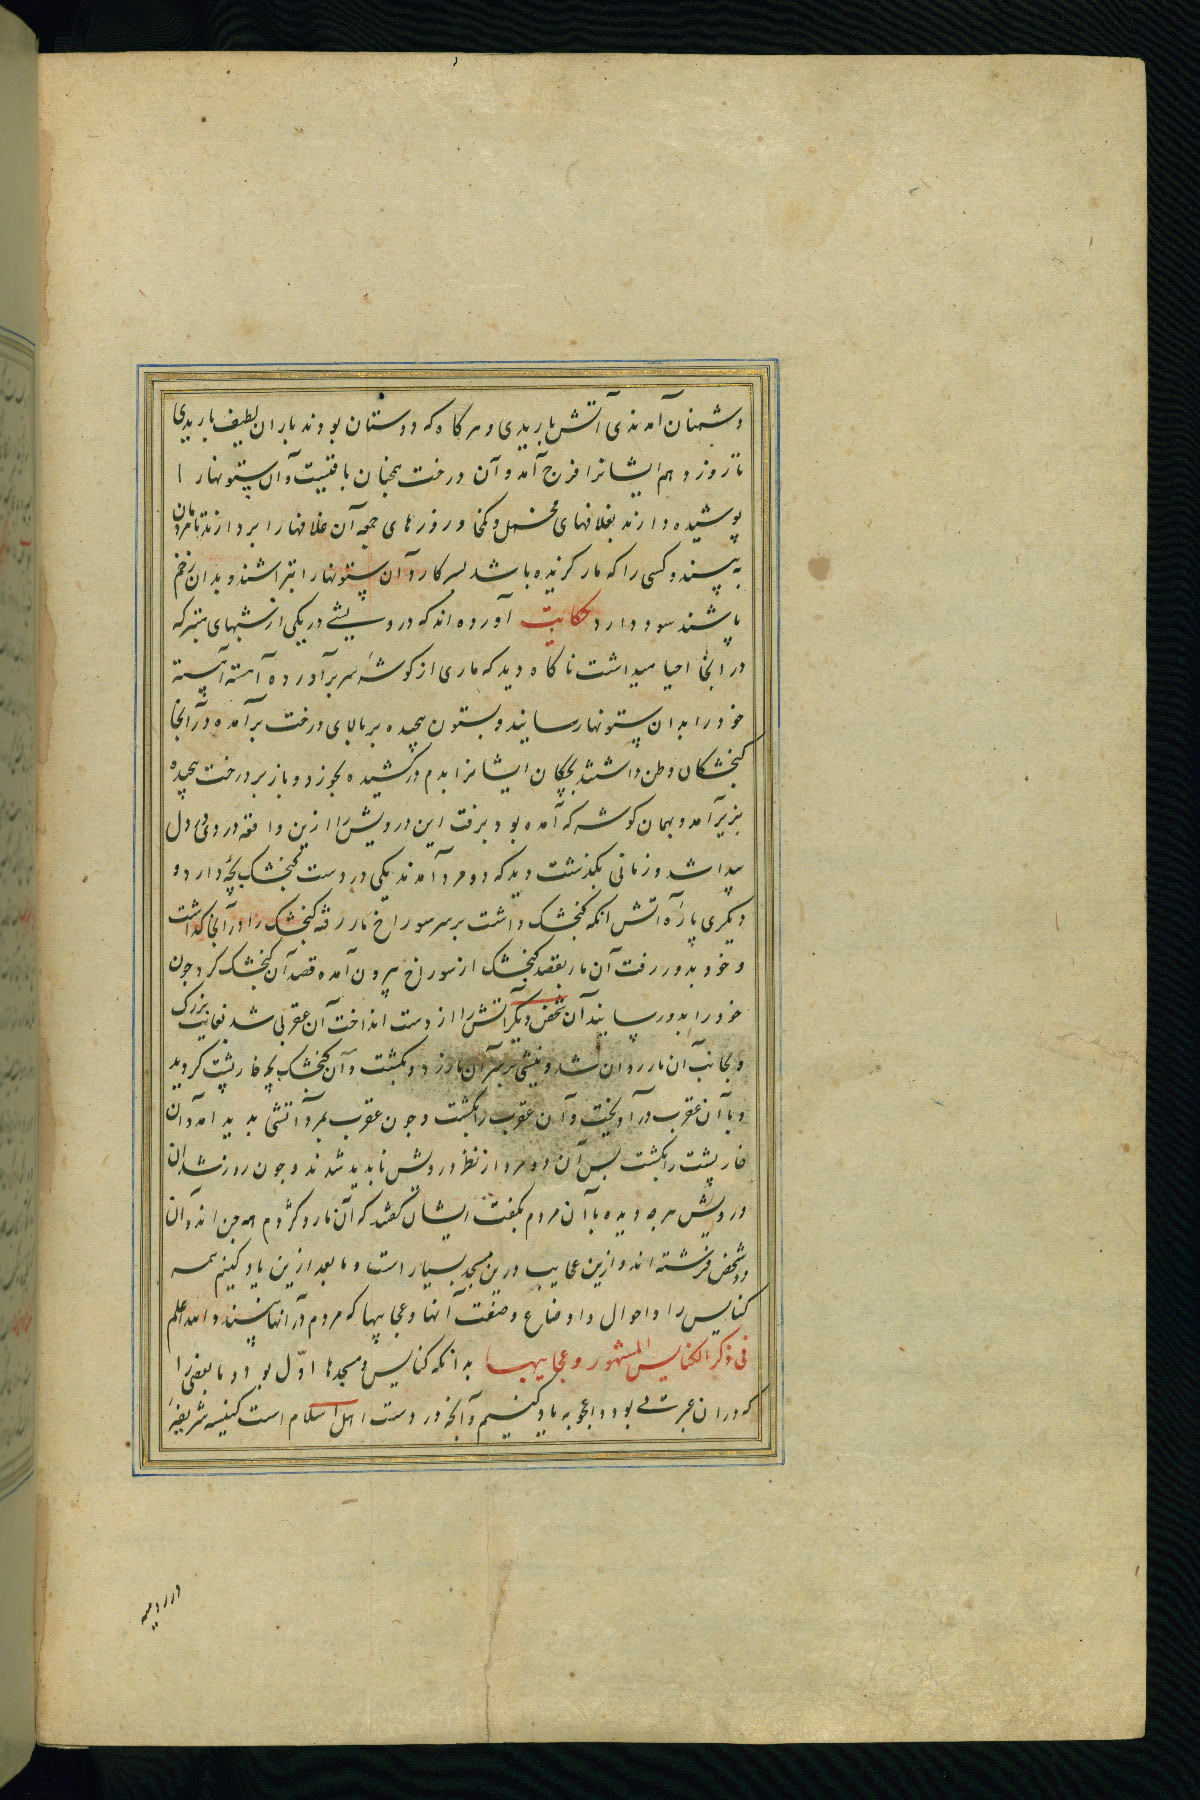 دشمنان آمدندی آتش باریدی و هر کاه که دوستان بودند باران لطیف باریدی
تا روز دهم ایشانرا فرج آمد و آن درخت همچنان باقیست و آن ستونها را
پوشیده دارند بغلافهای مخمل و کمخا و روزهای جمعه آن غلافها را بردارند تا مردمان
به بینند و کسی را که مار کزیده باشد بسر کارد آن ستونها را بتراشند و بدان زخم
پاشند سود دارد حکایت آورده اند که درویشی در یکی از شبهای متبرکه
در آنجا احیا میداشت ناکاه دید که ماری از کوشهٔ سر برآورده آهسته آهسته
خود را بدان ستونها رسانید و بستون پیچیده بر بالای درخت برآمده و در آنجا
کنجشکان وطن داشتند بچکان ایشانرا بدم درکشیده بخورد و باز بر درخت پیچیده
بزیر آمد و بهمان کوشه که آمده بود برفت این درویش را ازین واقعه دردی در دل
پیدا شد و زمانی بکذشت دید که دو مرد آمدند یکی در دست کنجشک بچهٔ دارد و
دیکری پارهٔ آتش انکه کنجشک داشت بر سر سوراخ مار رفته کنجشک را در آنجا کذاشت
و خود بدور رفت آن مار بقصد کنجشک از سوراخ بیرون آمده قصد آن کنجشک کرد چون
خود را بدو رسانید آن شخص دیکر آتش را از دست انداخت آن عقربی شد بغایت بزرک
و بجانب آن مار روان شد و نیشی بر سر آن مار زد و بکشت و آن کنجشک بچه خارپشت کردید
و با آن عقرب درآویخت و آن عقرب را بکشت و چون عقرب بمرد آتشی بدید آمد و آن
خارپشت را بکشت پس آن دو مرد از نظر درویش ناپدید شدند و چون روز شد آن
درویش هر چه دیده با آن مردم بکفت ایشان کفتند که آن مار و کژدم همه جن اند و آن
دو شخص فرشته اند و ازین عجایب درین مسجد بسیار است و ما بعد ازین یاد کنیم همه
کنایس را و احوال و اوضاع و صفت آنها و عجایبها که مردم در آنها بینند و الله اعلم
فی ذکر الکنایس المشهور و عجایبها بدانکه کنایس و مسجدها اوّل بود و ما بعضی را
که در آن عبرت بود و اعجوبه یاد کنیم و آنچه در دست اهل اسلام است کنیسه شریفهٔ
در رومیه